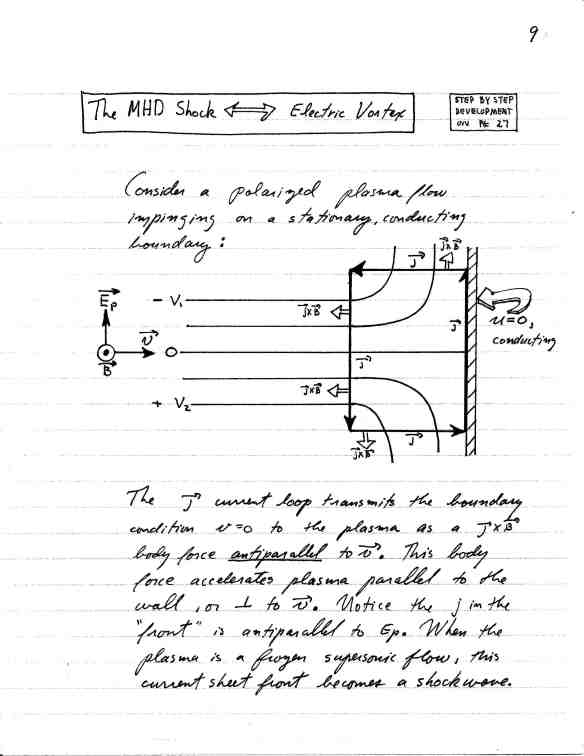 9
The MHD Shock ⟺ Electric Vortex
STEP BY STEP
DEVELOPMENT
DIV № 27
Consider a polarized plasma flow
impinging on a stationary, conducting
boundary:
J×B
J
E_P
- V₁
J×B
J
u=0,
conducting
v
O
J
B
J×B
+ V₂
J
J×B
The J current loop transmits the boundary
condition v=0 to the plasma as a J×B
body force antiparallel to v. This body
force accelerates plasma parallel to the
wall, or ⊥ to v. Notice the j in the
"front" is antiparallel to Ep. When the
plasma is a frozen supersonic flow, this
current sheet front becomes a shockwave.